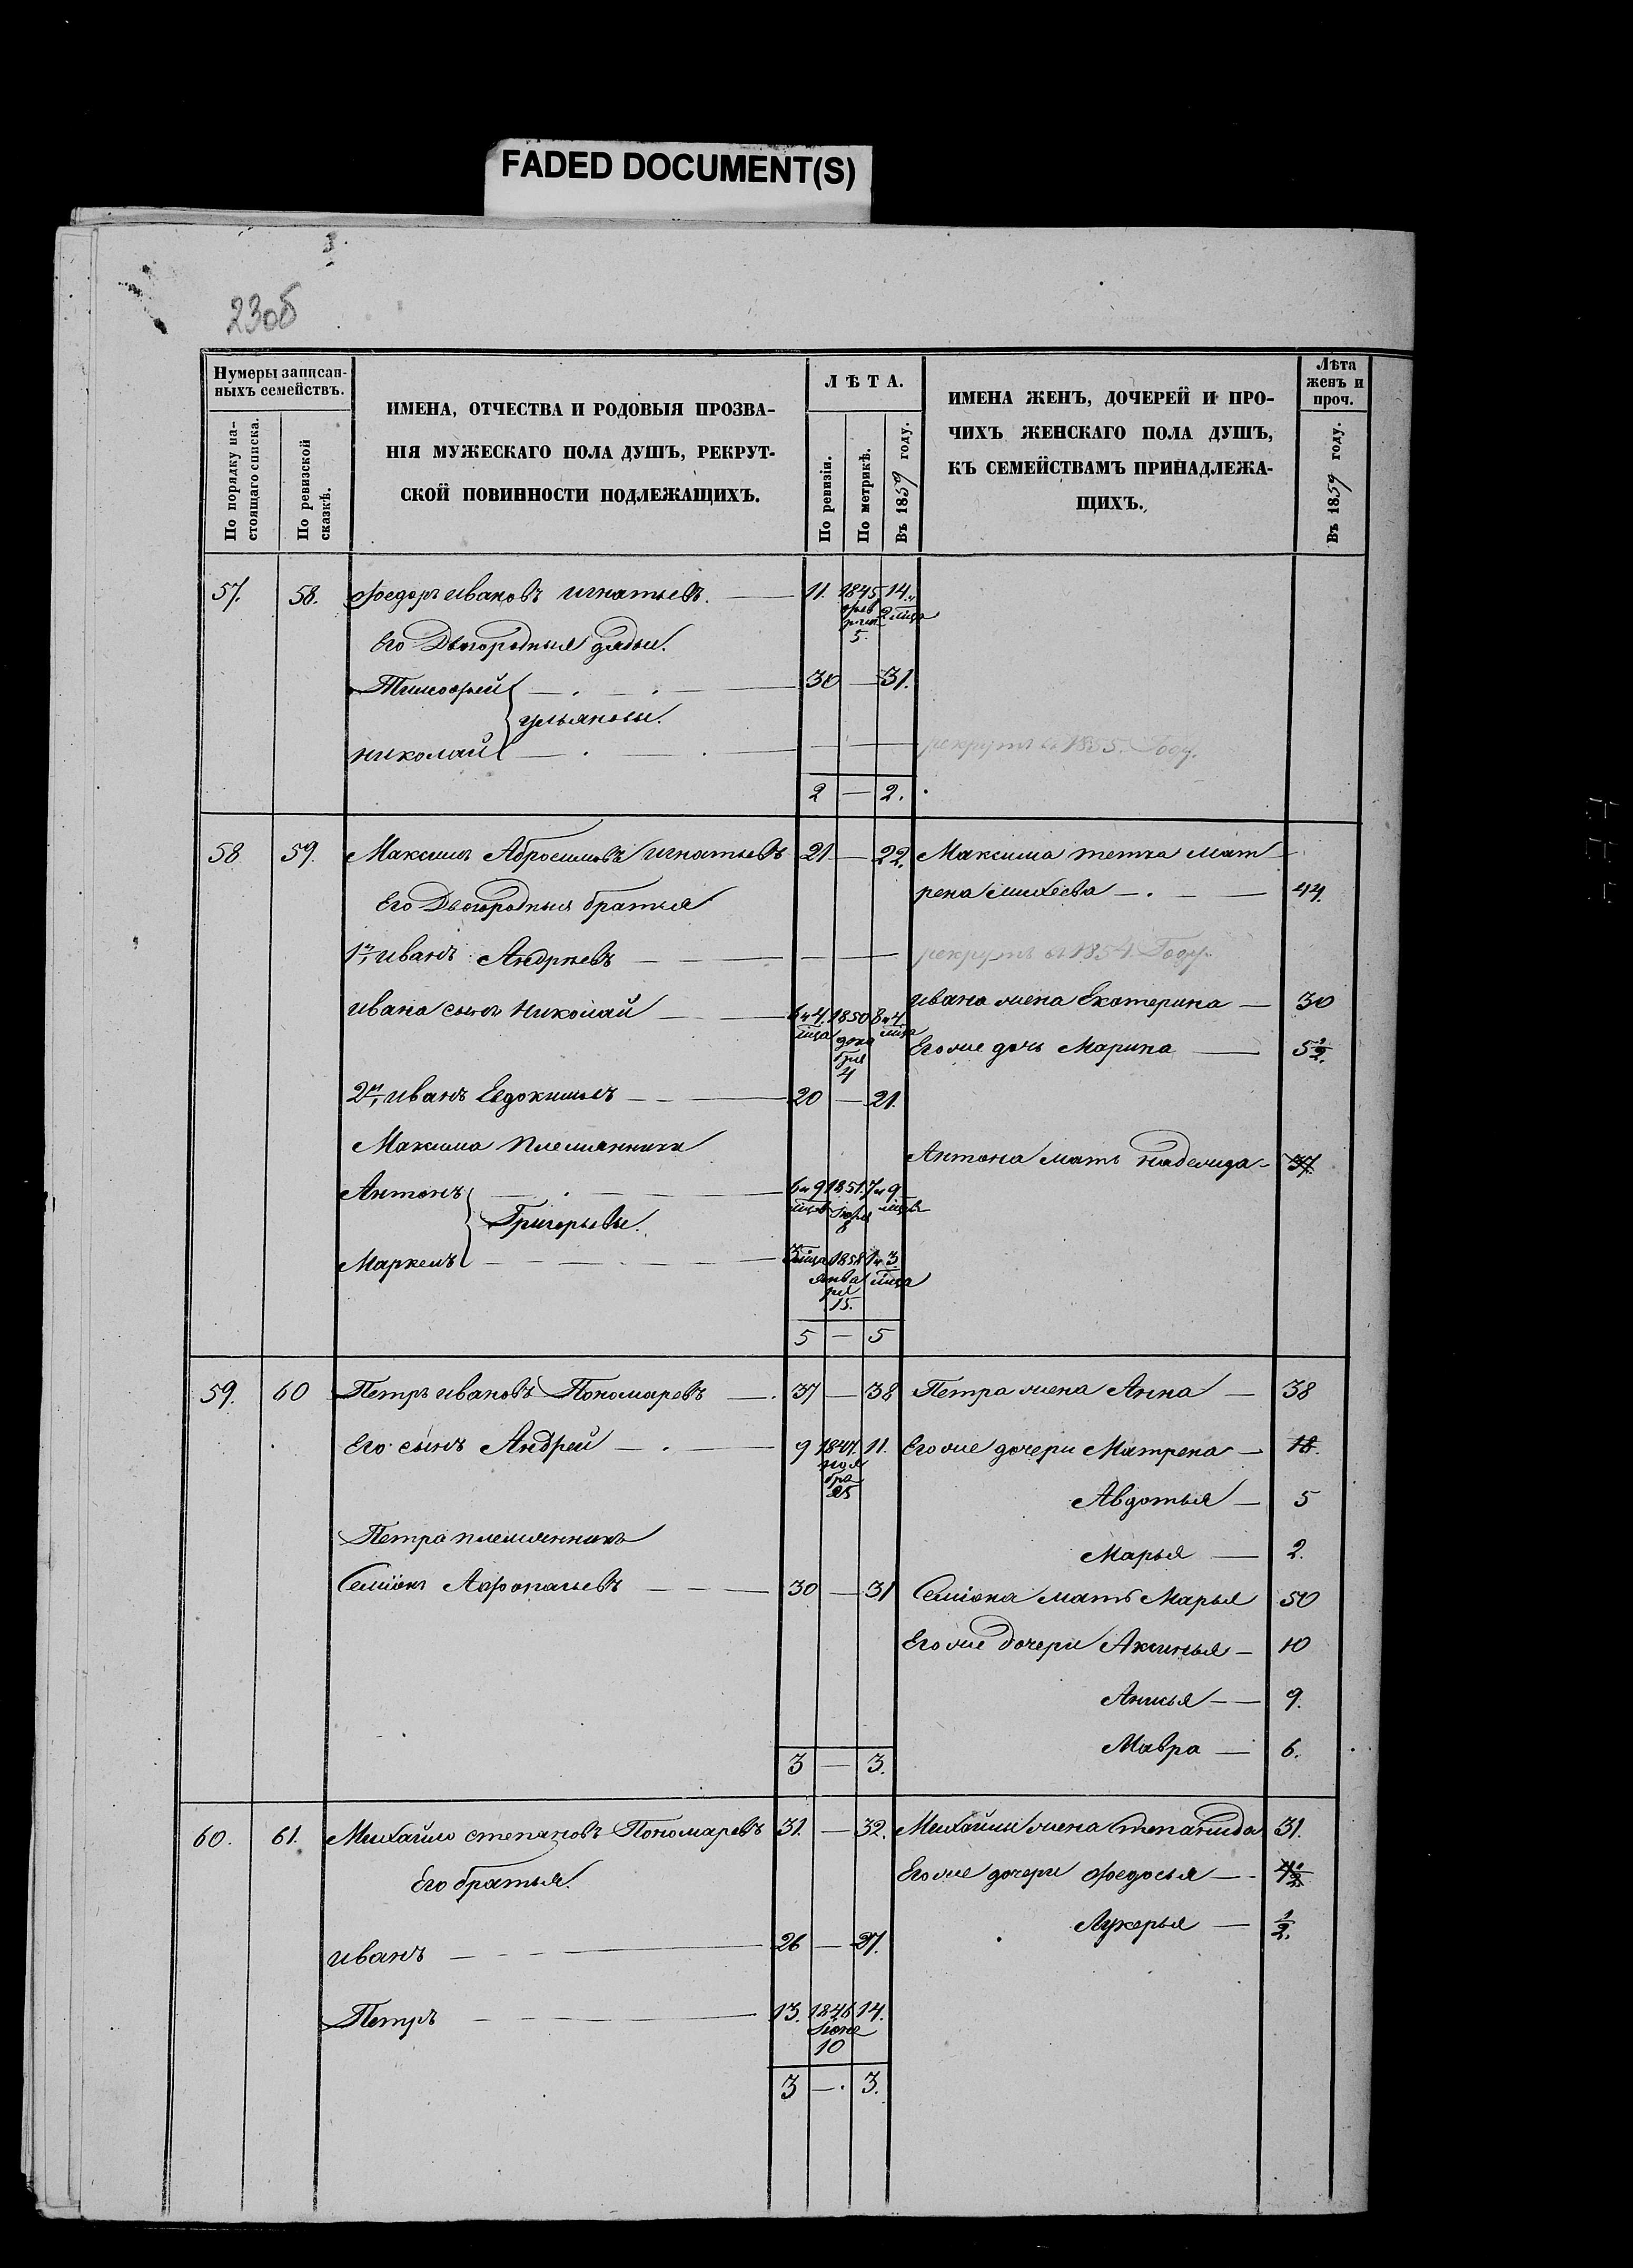 FADED DOCUMENT(S)
3.
230б
Нумеры записан-
ныхъ семействъ.
По порядку на-
стоящаго списка.
По ревизской
сказкѣ.
ИМЕНА, ОТЧЕСТВА И РОДОВЫЯ ПРОЗВА-
НІЯ МУЖЕСКАГО ПОЛА ДУШЪ, РЕКРУТ-
СКОЙ ПОВИННОСТИ ПОДЛЕЖАЩИХЪ.
ЛѢТА.
По ревизіи.
По метрикѣ.
Въ 1859 году.
ИМЕНА ЖЕНЪ, ДОЧЕРЕЙ И ПРО-
ЧИХЪ ЖЕНСКАГО ПОЛА ДУШЪ,
КЪ СЕМЕЙСТВАМЪ ПРИНАДЛЕЖА-
ЩИХЪ.
Лѣта
женъ и
проч.
Въ 1859 году.
57. 58. Федоръ Ивановъ Игнатьевъ. — 11. 1845 февраля 5. 14 2 мца
Его Двоюродныя дядьи.
Тимофей — 30 — 31.
Ульяновы.
Николай — рекрутъ въ 1855. Году.
2 — 2.
58 59. Максимъ Абросимовъ Игнатьевъ 21 — 22. Максима тетка Мат
Его Двоюродныя братья рена Михеева — 44.
1й, Иванъ Андреевъ — рекрутъ въ 1854. Году.
Ивана сынъ Николай — 6 и 4 мца 1850 декабря 4 8 и 4 мца Ивана жена Екатерина — 30
Его же дочь Марина — 5½.
2й, Иванъ Евдокимовъ — 20 — 21.
Максима Племянники
Антона мать Надежда — 37.
Антонъ — 6 и 9 мцов 1851. 7 и 9 мцов
Григорьевы.
Маркелъ — 3 мца 1858 января 15. 1 и 3 мца
5 — 5
59. 60 Петръ Ивановъ Пономаревъ — 37 — 38 Петра жена Анна — 38
Его сынъ Андрей — 9 1847. ноября 25 11. Его же дочери Матрена — 18.
Авдотья — 5
Петра племянникъ
Марья — 2.
Семіонъ Афонасьевъ — 30 — 31 Семіона мать Марья 50
Его же дочери Аксинья — 10
Анисья — 9.
Мавра — 6.
3 — 3.
60. 61. Михайло Степановъ Пономаревъ 31. — 32. Михайлы жена Степанида 31.
Его братья. Его же дочери Федосья — 4½
Лукерья — ½.
Иванъ — 26 — 27.
Петръ — 13. 1846 Іюня 10 14.
3 — 3.